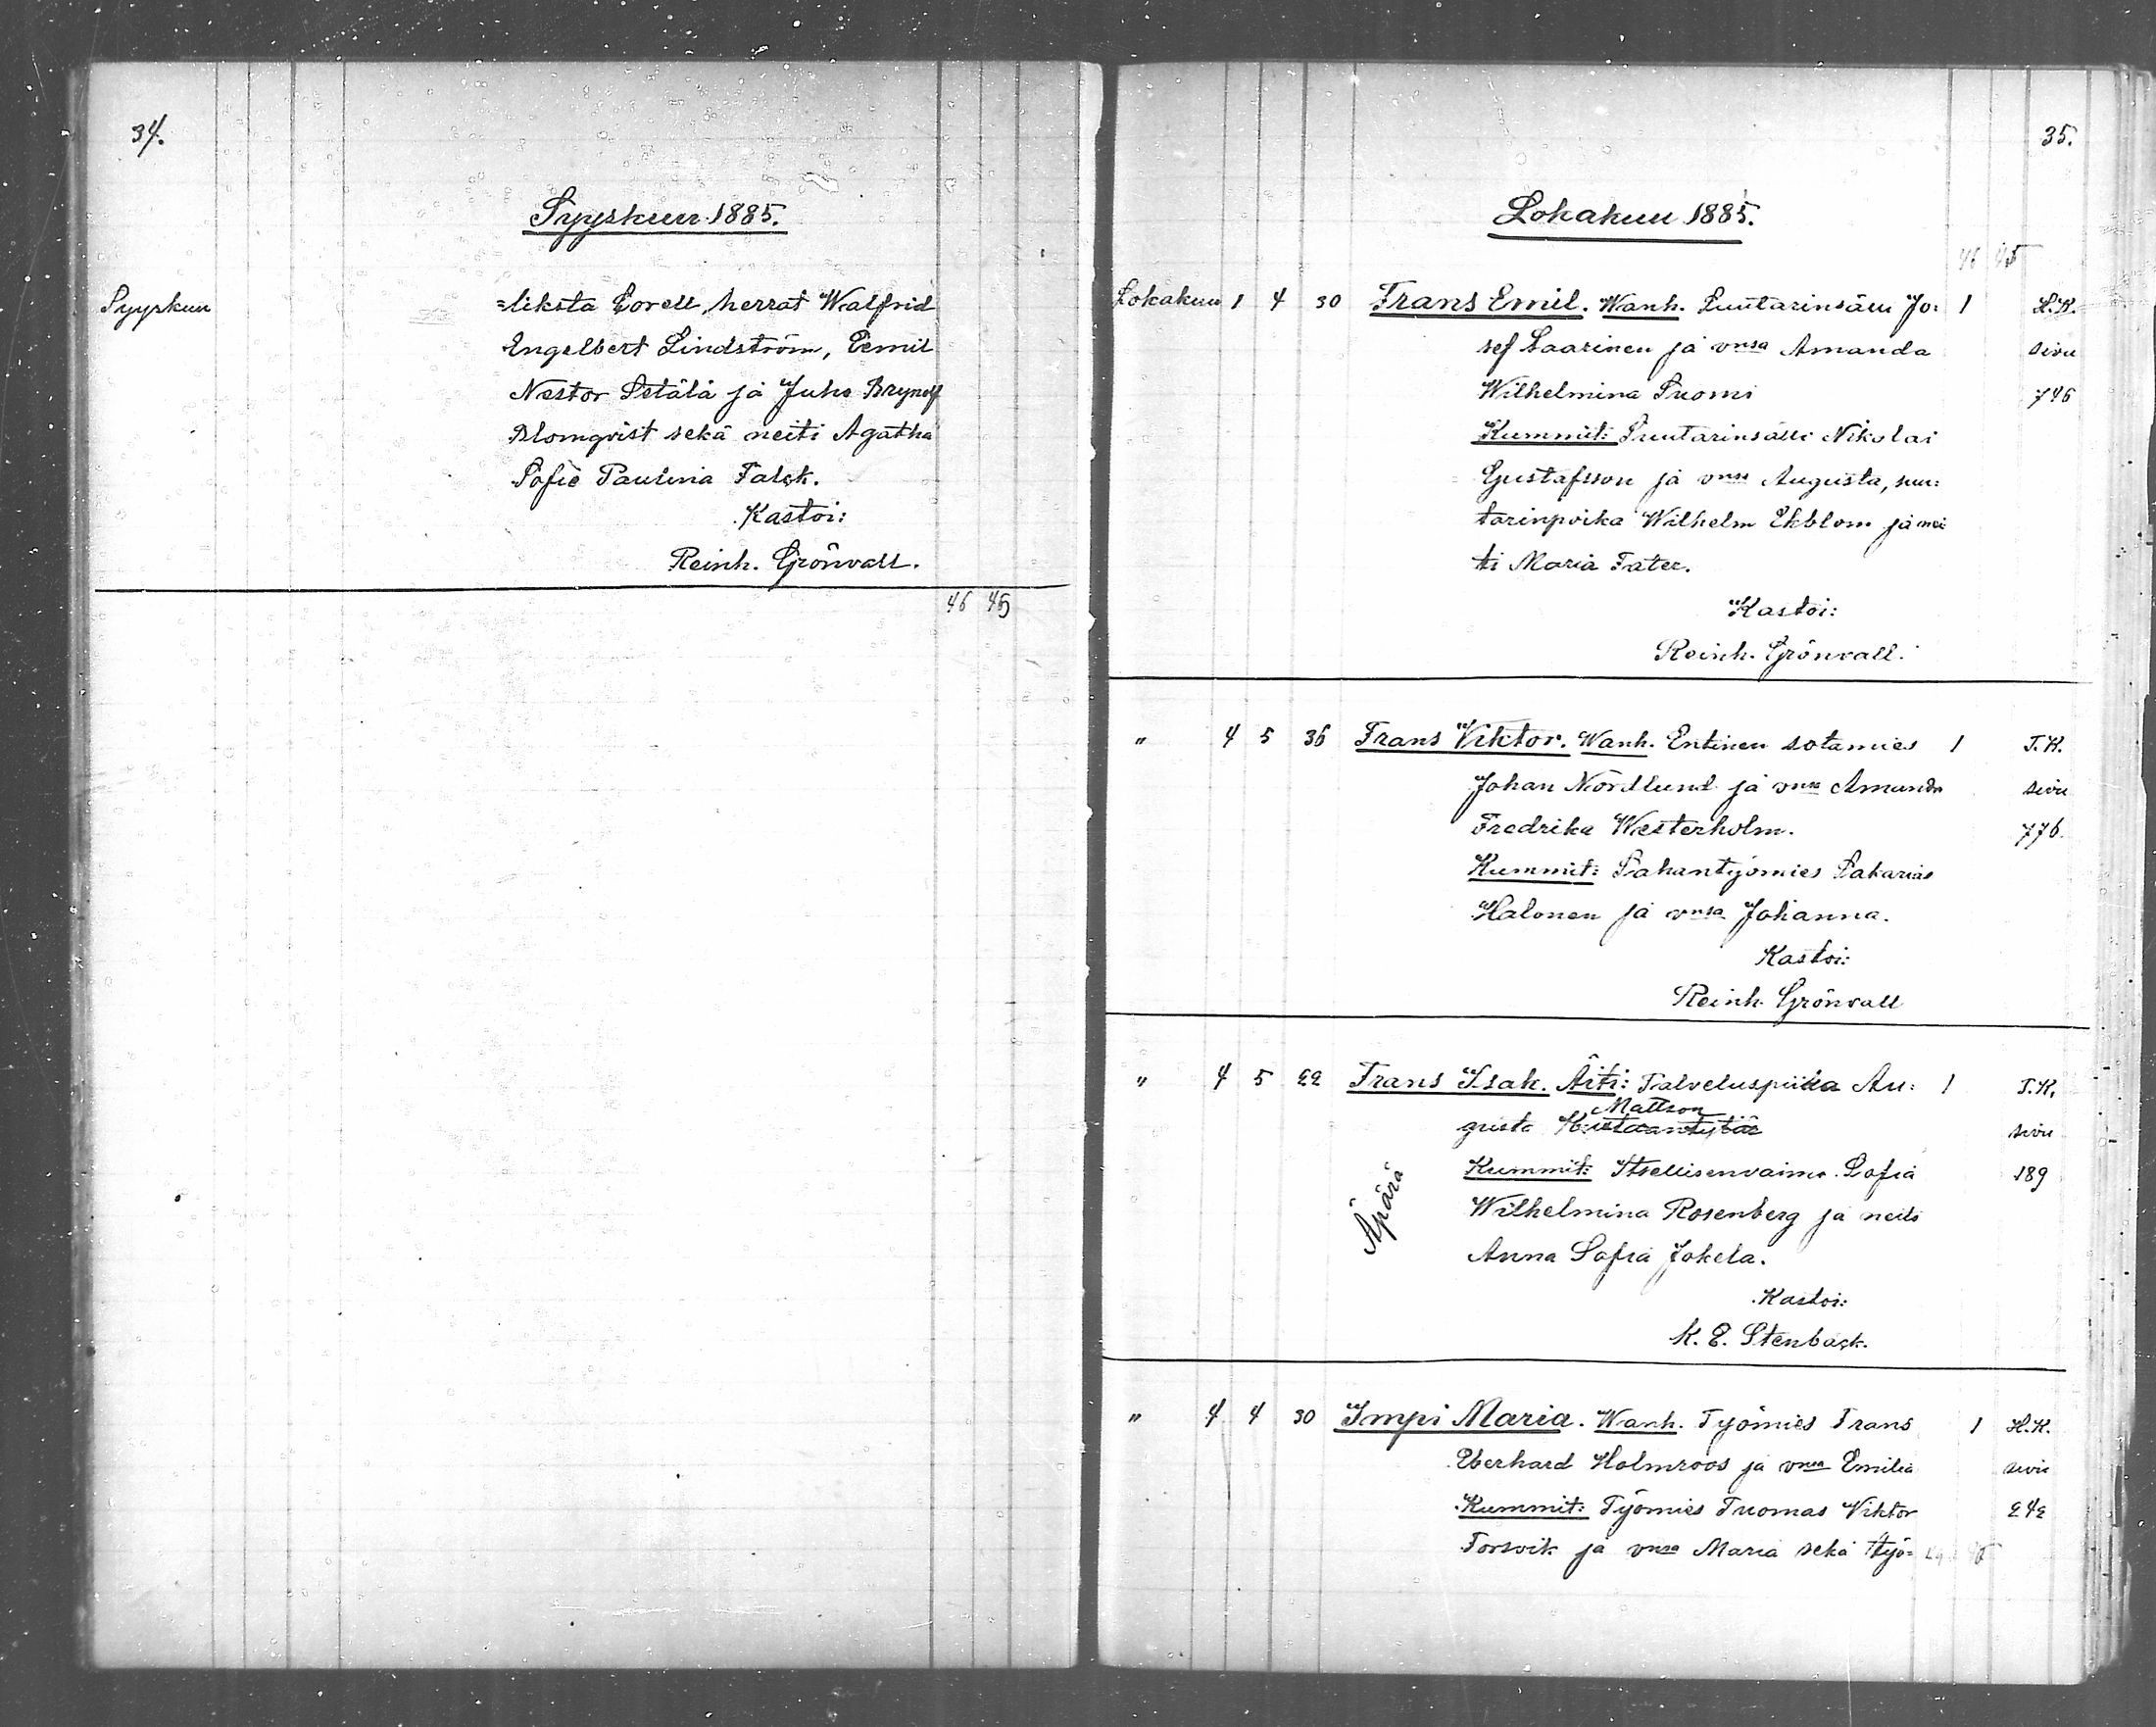 34.
Syyskuu 1885.
Syyskuu =liksta Corell, herrat Walfrid
Engelbert Lindström, Eemil
Nestor Setälä ja Juho Brynolf
Blomqvist sekä neiti Agatha
Sofie Paulina Falck.
Kastoi:
Reinh. Grönvall.
46 45
35.
Lokakuu 1885.
46 45
Lokakuu 1 4 30 Frans Emil. Wanh. Suutarinsälli Jo= 1 H.K.
sef Saarinen ja vnsa Amanda sivu
Wilhelmina Suomi 746
Kummit: Suutarinsälli Nikolai
Gustafsson ja vnsa Augusta, suu=
tarinpoika Wilhelm Ekblom ja nei
ti Maria Fater.
Kastoi:
Reinh. Grönvall.
" 4 5 36 Frans Viktor. Wanh. Entinen sotamies 1 T.K.
Johan Nordlund ja vnsa Amanda sivu
Fredrika Westerholm. 776.
Kummit: Sahantyömies Sakarias
Halonen ja vnsa Johanna.
Kastoi:
Reinh. Grönvall
" 4 5 22 Frans Isak. Äiti: Palveluspiika Au= 1 T.K.
Mattson
gusta Kustaantytär sivu
Kummit: Itsellisenvaimo Sofia 189
Äpärä
Wilhelmina Rosenberg ja neiti
Anna Sofia Jokela.
Kastoi:
K. E. Stenbäck.
" 4 4 30 Impi Maria. Wanh. Työmies Frans 1 H.K.
Eberhard Holmroos ja vnsa Emilia sivu
Kummit: Työmies Tuomas Viktor 242
Forsvik ja vnsa Maria sekä työ=